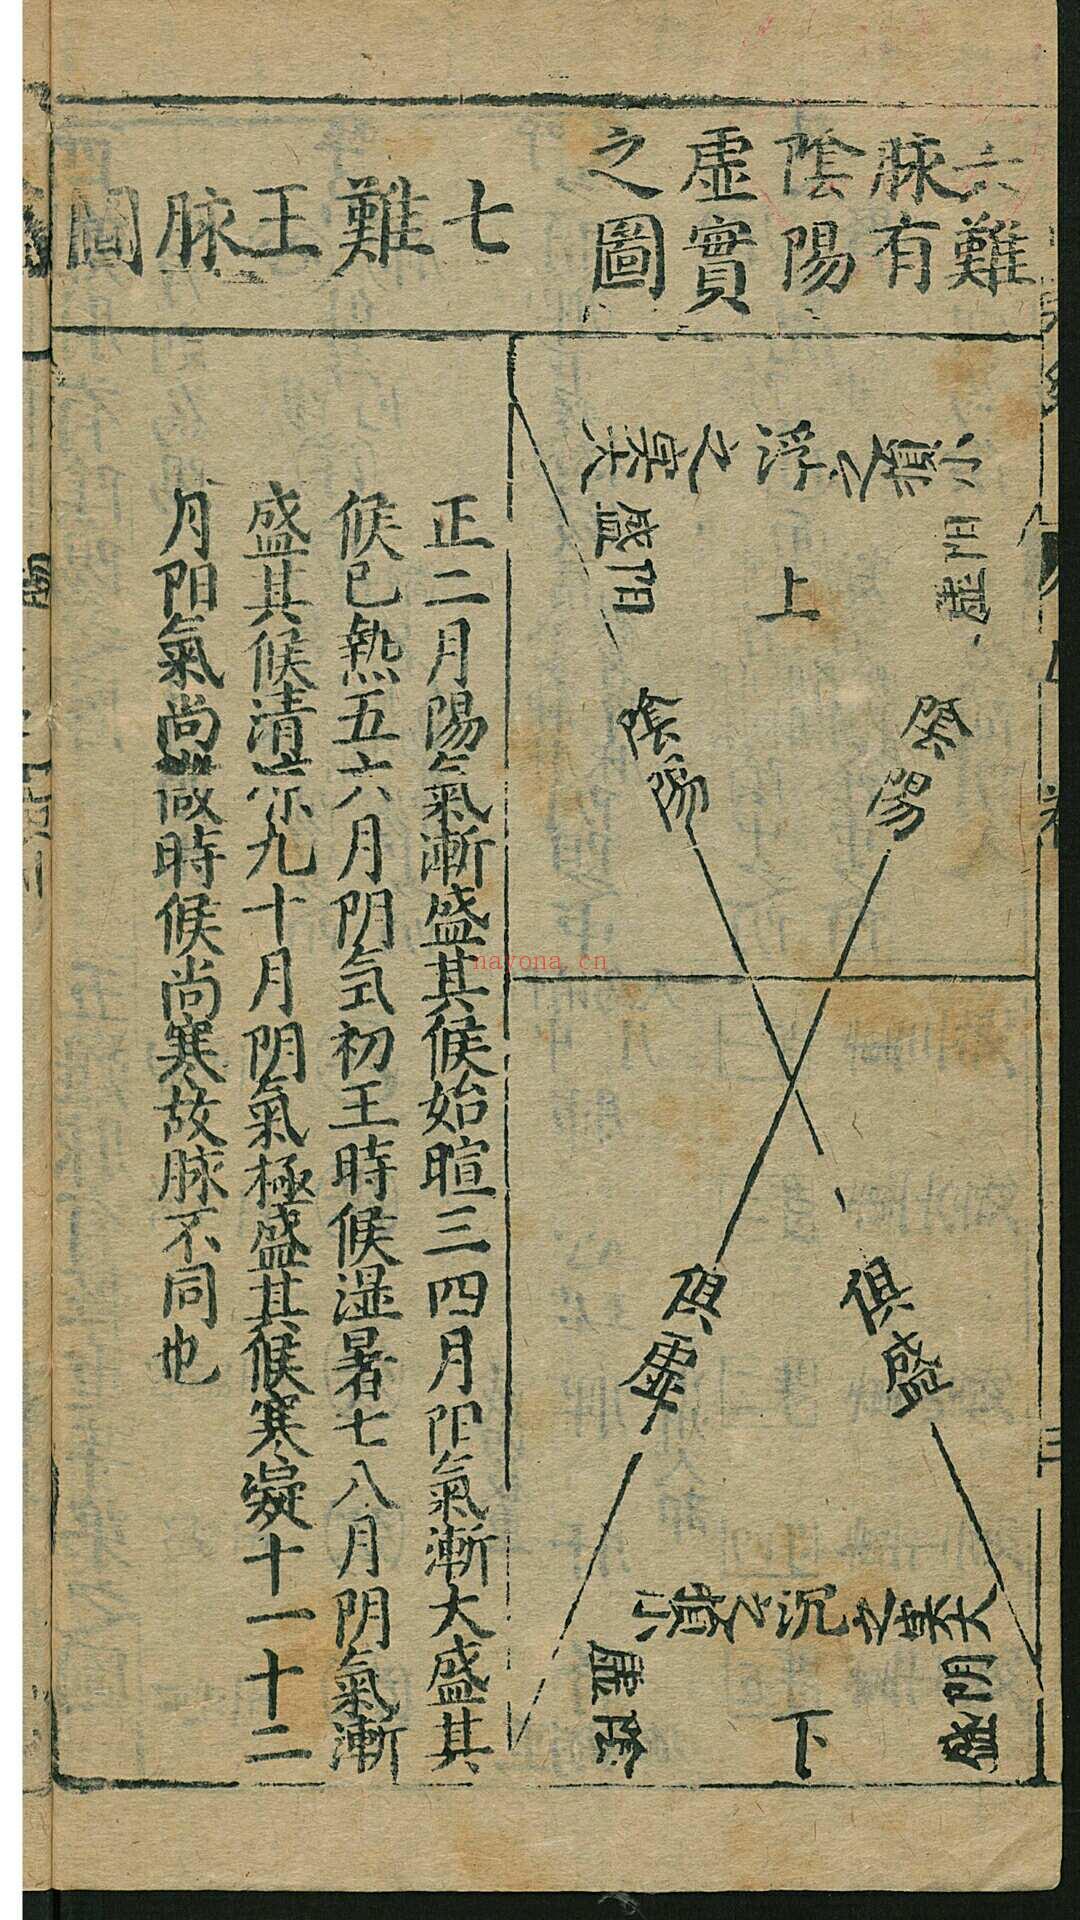 六難
脉有
陰陽
虛實
之圖
小
之
浮
之
陽虛
陽盛
上
陰陽
陰陽
俱盛
俱虛
大
之
沉
之
小
阴盛
陰虛
下
七難王脉圖
正二月陽氣漸盛其候始暄三四月阳氣漸大盛其
候已熱五六月阴氣初王時候湿暑七八月阴氣漸
盛其候清凉九十月阴氣極盛其候寒凝十一十二
月阳氣尚微時候尚寒故脉不同也
nayona.cn